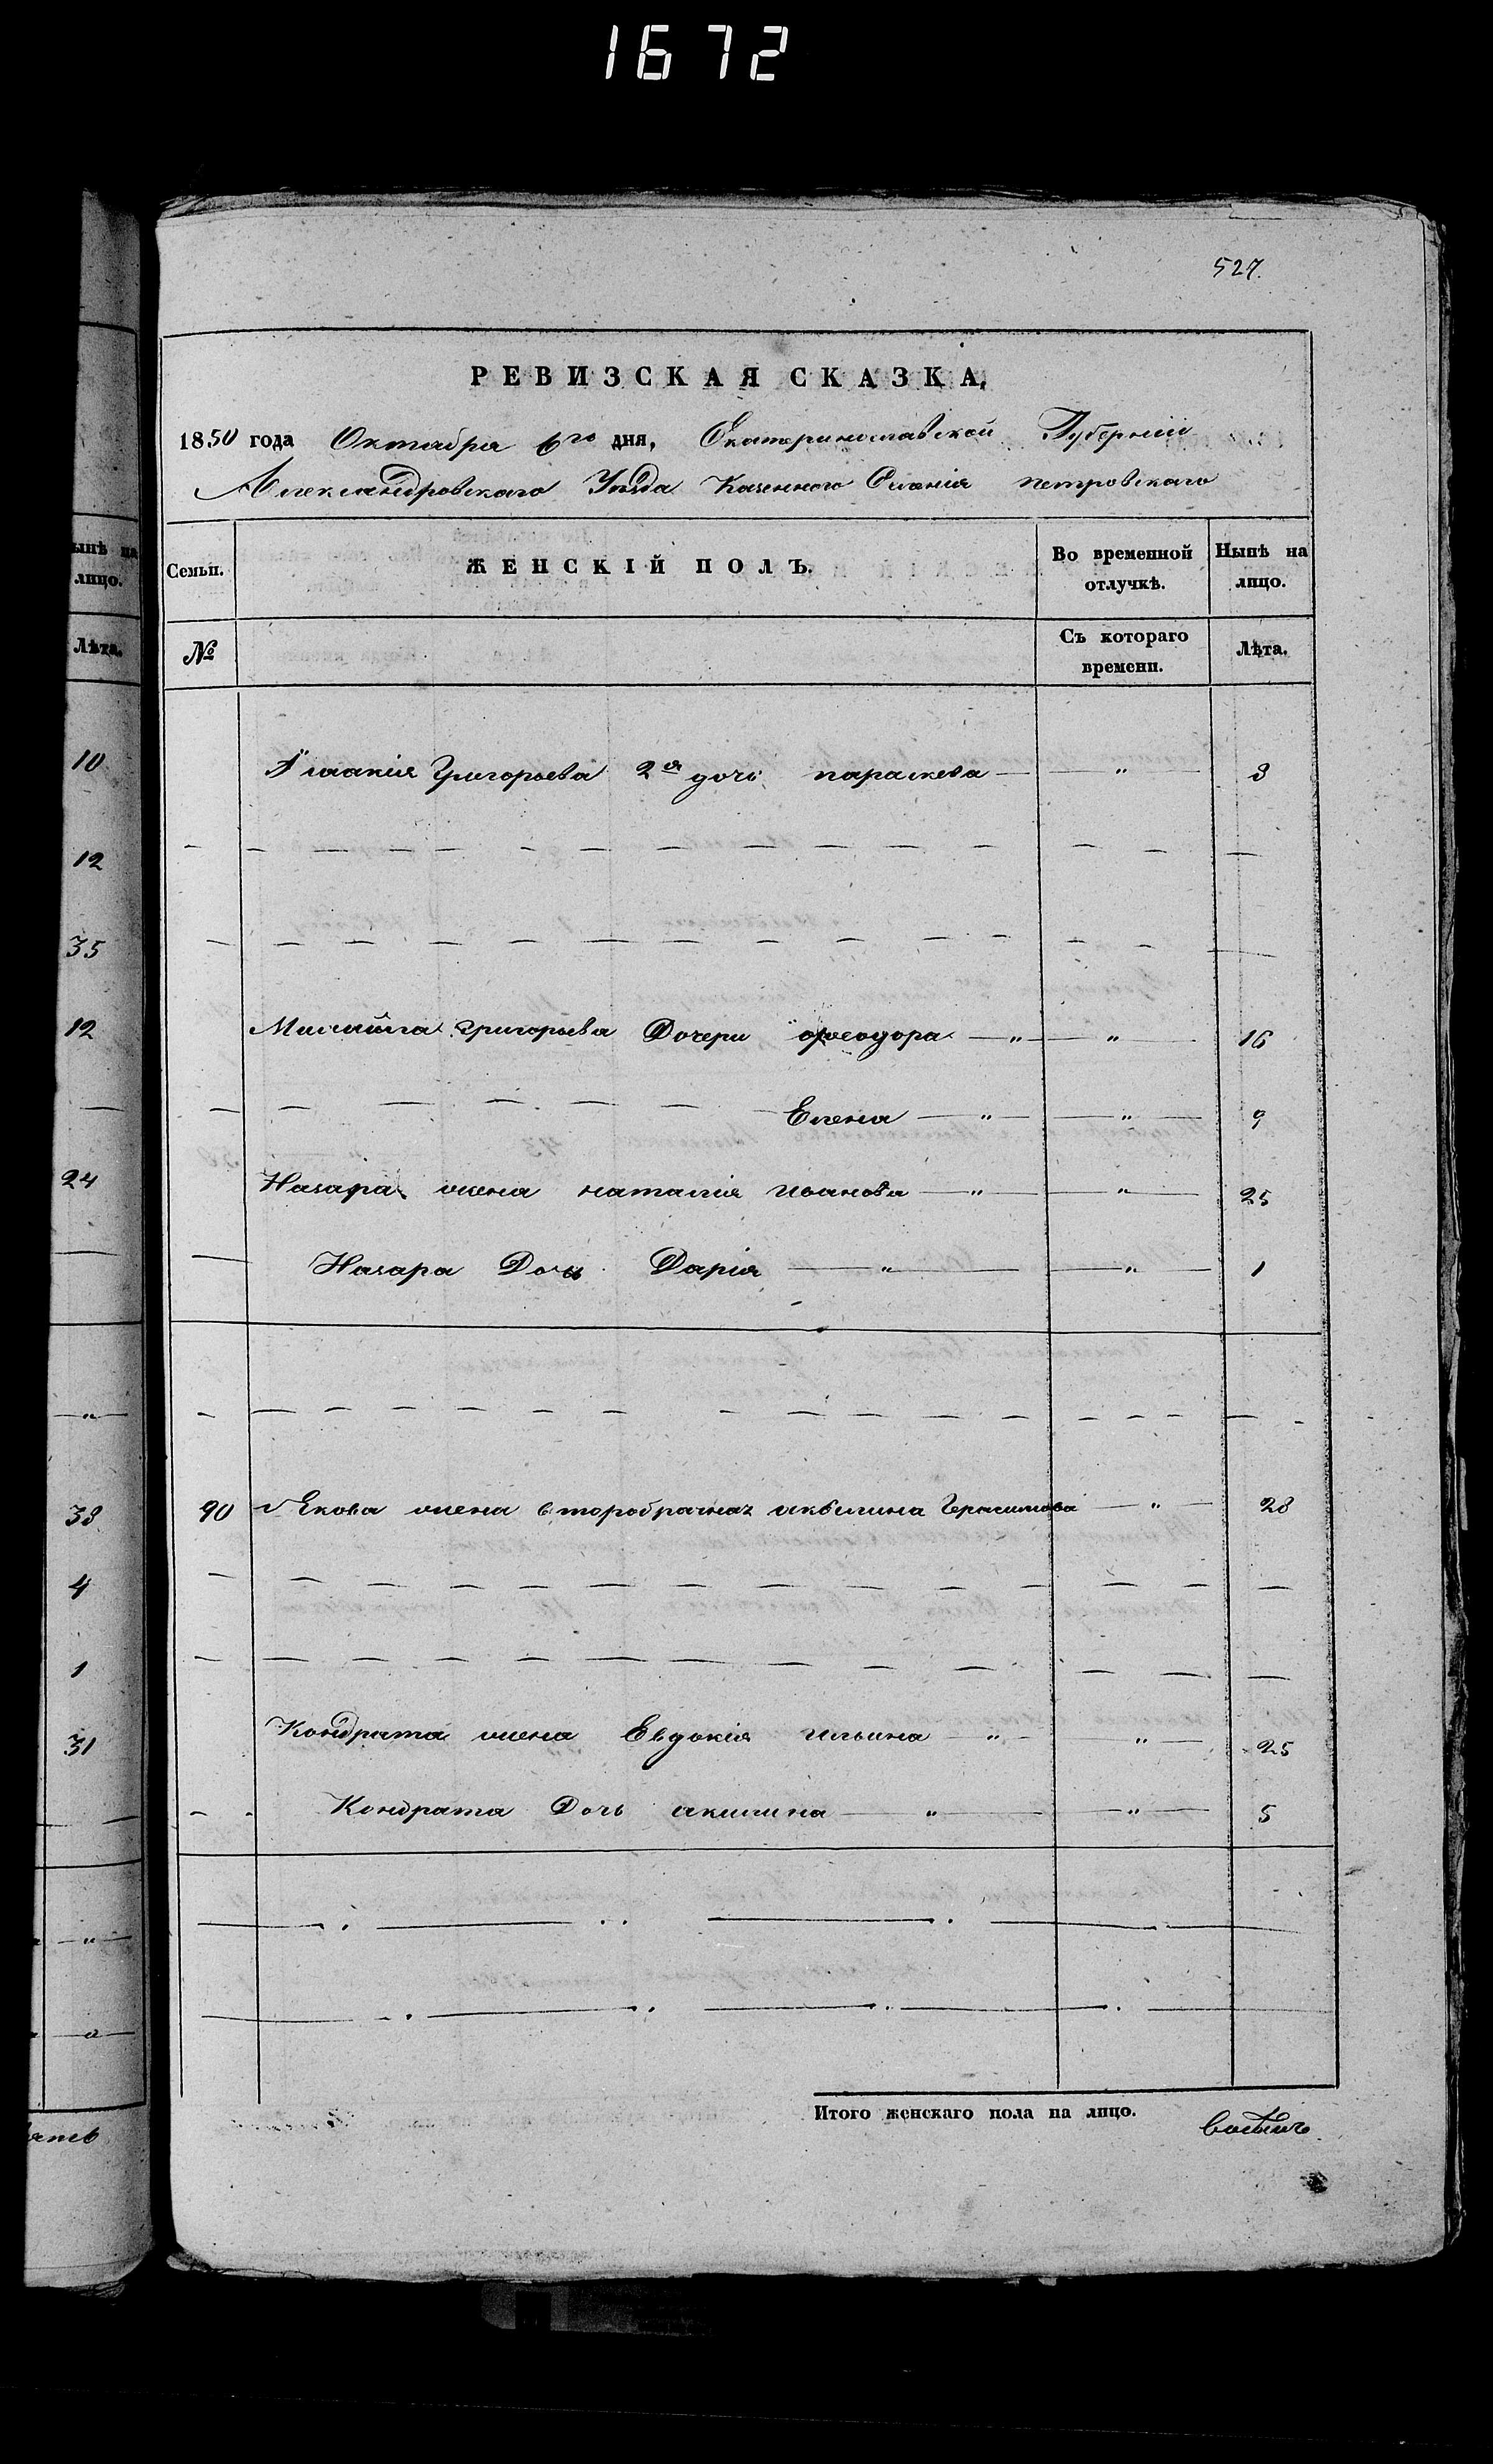 1672
527.
РЕВИЗСКАЯ СКАЗКА,
1850 года Октабра 6го дня, Екатеринославской Губерніи
Александровскаго Уезда Казенного Селенія петровскаго
Семьи. ЖЕНСКІЙ ПОЛЪ. Во временной отлучкѣ. Нынѣ на лицо.
№ Съ котораго времени. Лѣта.
Григорьева 2я дочь параскева — " 3
Михайла Григорьева Дочери феодора — " — " 16
Елена — " — " 9
Назара жена наталія иванова — " — " 25
Назара Дочь Дарія — " — " 1
90 Якова жена второбрачная аквилина Герасимова — " 28
Кондрата жена Евдокія ильина — " — " 25
Кондрата Дочь акилина — " — " 5
Итого женскаго пола на лицо.
ынѣ на
лицо.
Лѣта.
10
12
35
12
24
"
38
4
1
31
"